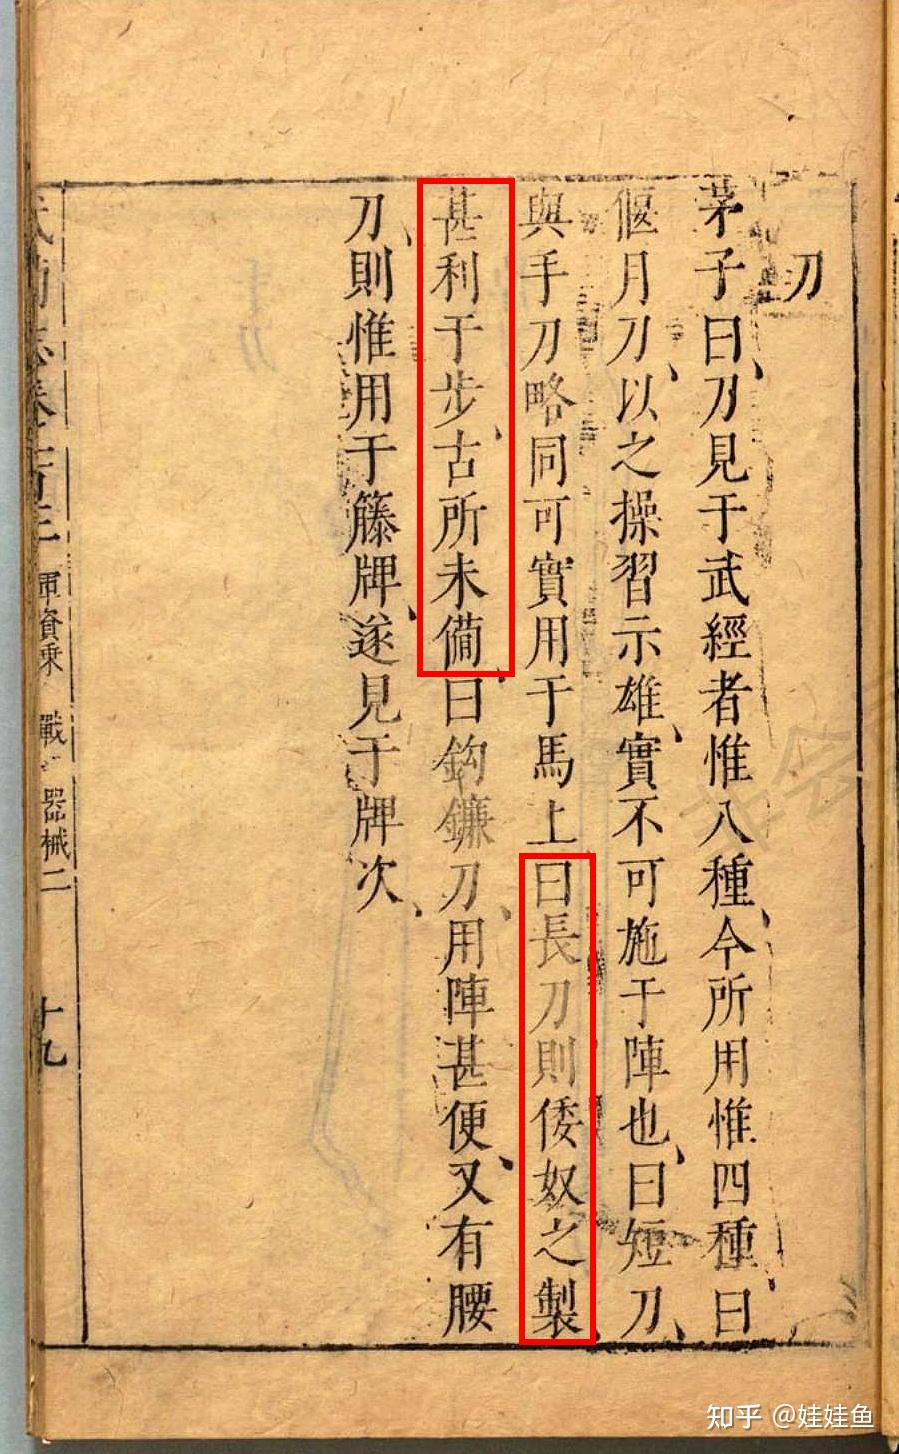 刀
茅子曰刀見于武經者惟八種今所用惟四種曰
偃月刀以之操習示雄實不可施于陣也曰短刀
與手刀略同可實用于馬上曰長刀則倭奴之製
甚利于步古所未備曰鈎鐮刀用陣甚便又有腰
刀則惟用于籐牌遂見于牌次
武備志卷百三 軍資乘 戰 器械二 十九
知乎 @娃娃鱼